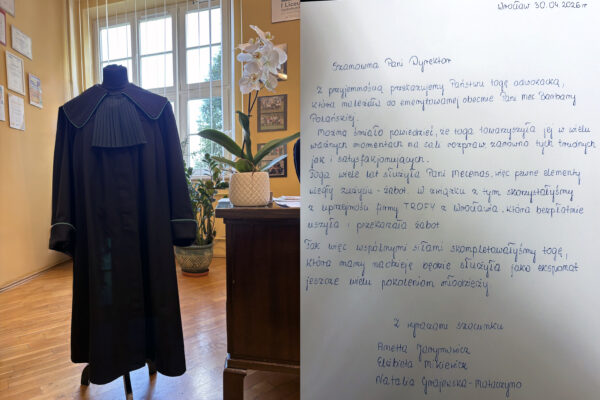 I Liceum
Wrocław 30.04.2026r
Szanowna Pani Dyrektor
Z przyjemnością przekazujemy Państwu togę adwokacką,
która należała do emerytowanej obecnie Pani mec Barbary
Polańskiej.
Można śmiało powiedzieć, że toga towarzyszyła jej w wielu
ważnych momentach na sali rozpraw, zarówno tych trudnych
jak i satysfakcjonujących.
Toga wiele lat służyła Pani Mecenas, więc pewne elementy
uległy zużyciu - żabot. W związku z tym skorzystałyśmy
z uprzejmości firmy TROFY z Wrocławia, która bezpłatnie
uszyła i przekazała żabot
Tak więc wspólnymi siłami skompletowałyśmy togę,
która mamy nadzieję będzie służyła jako eksponat
jeszcze wielu pokoleniom młodzieży
Z wyrazami szacunku
Anetta
Elżbieta
Natalia